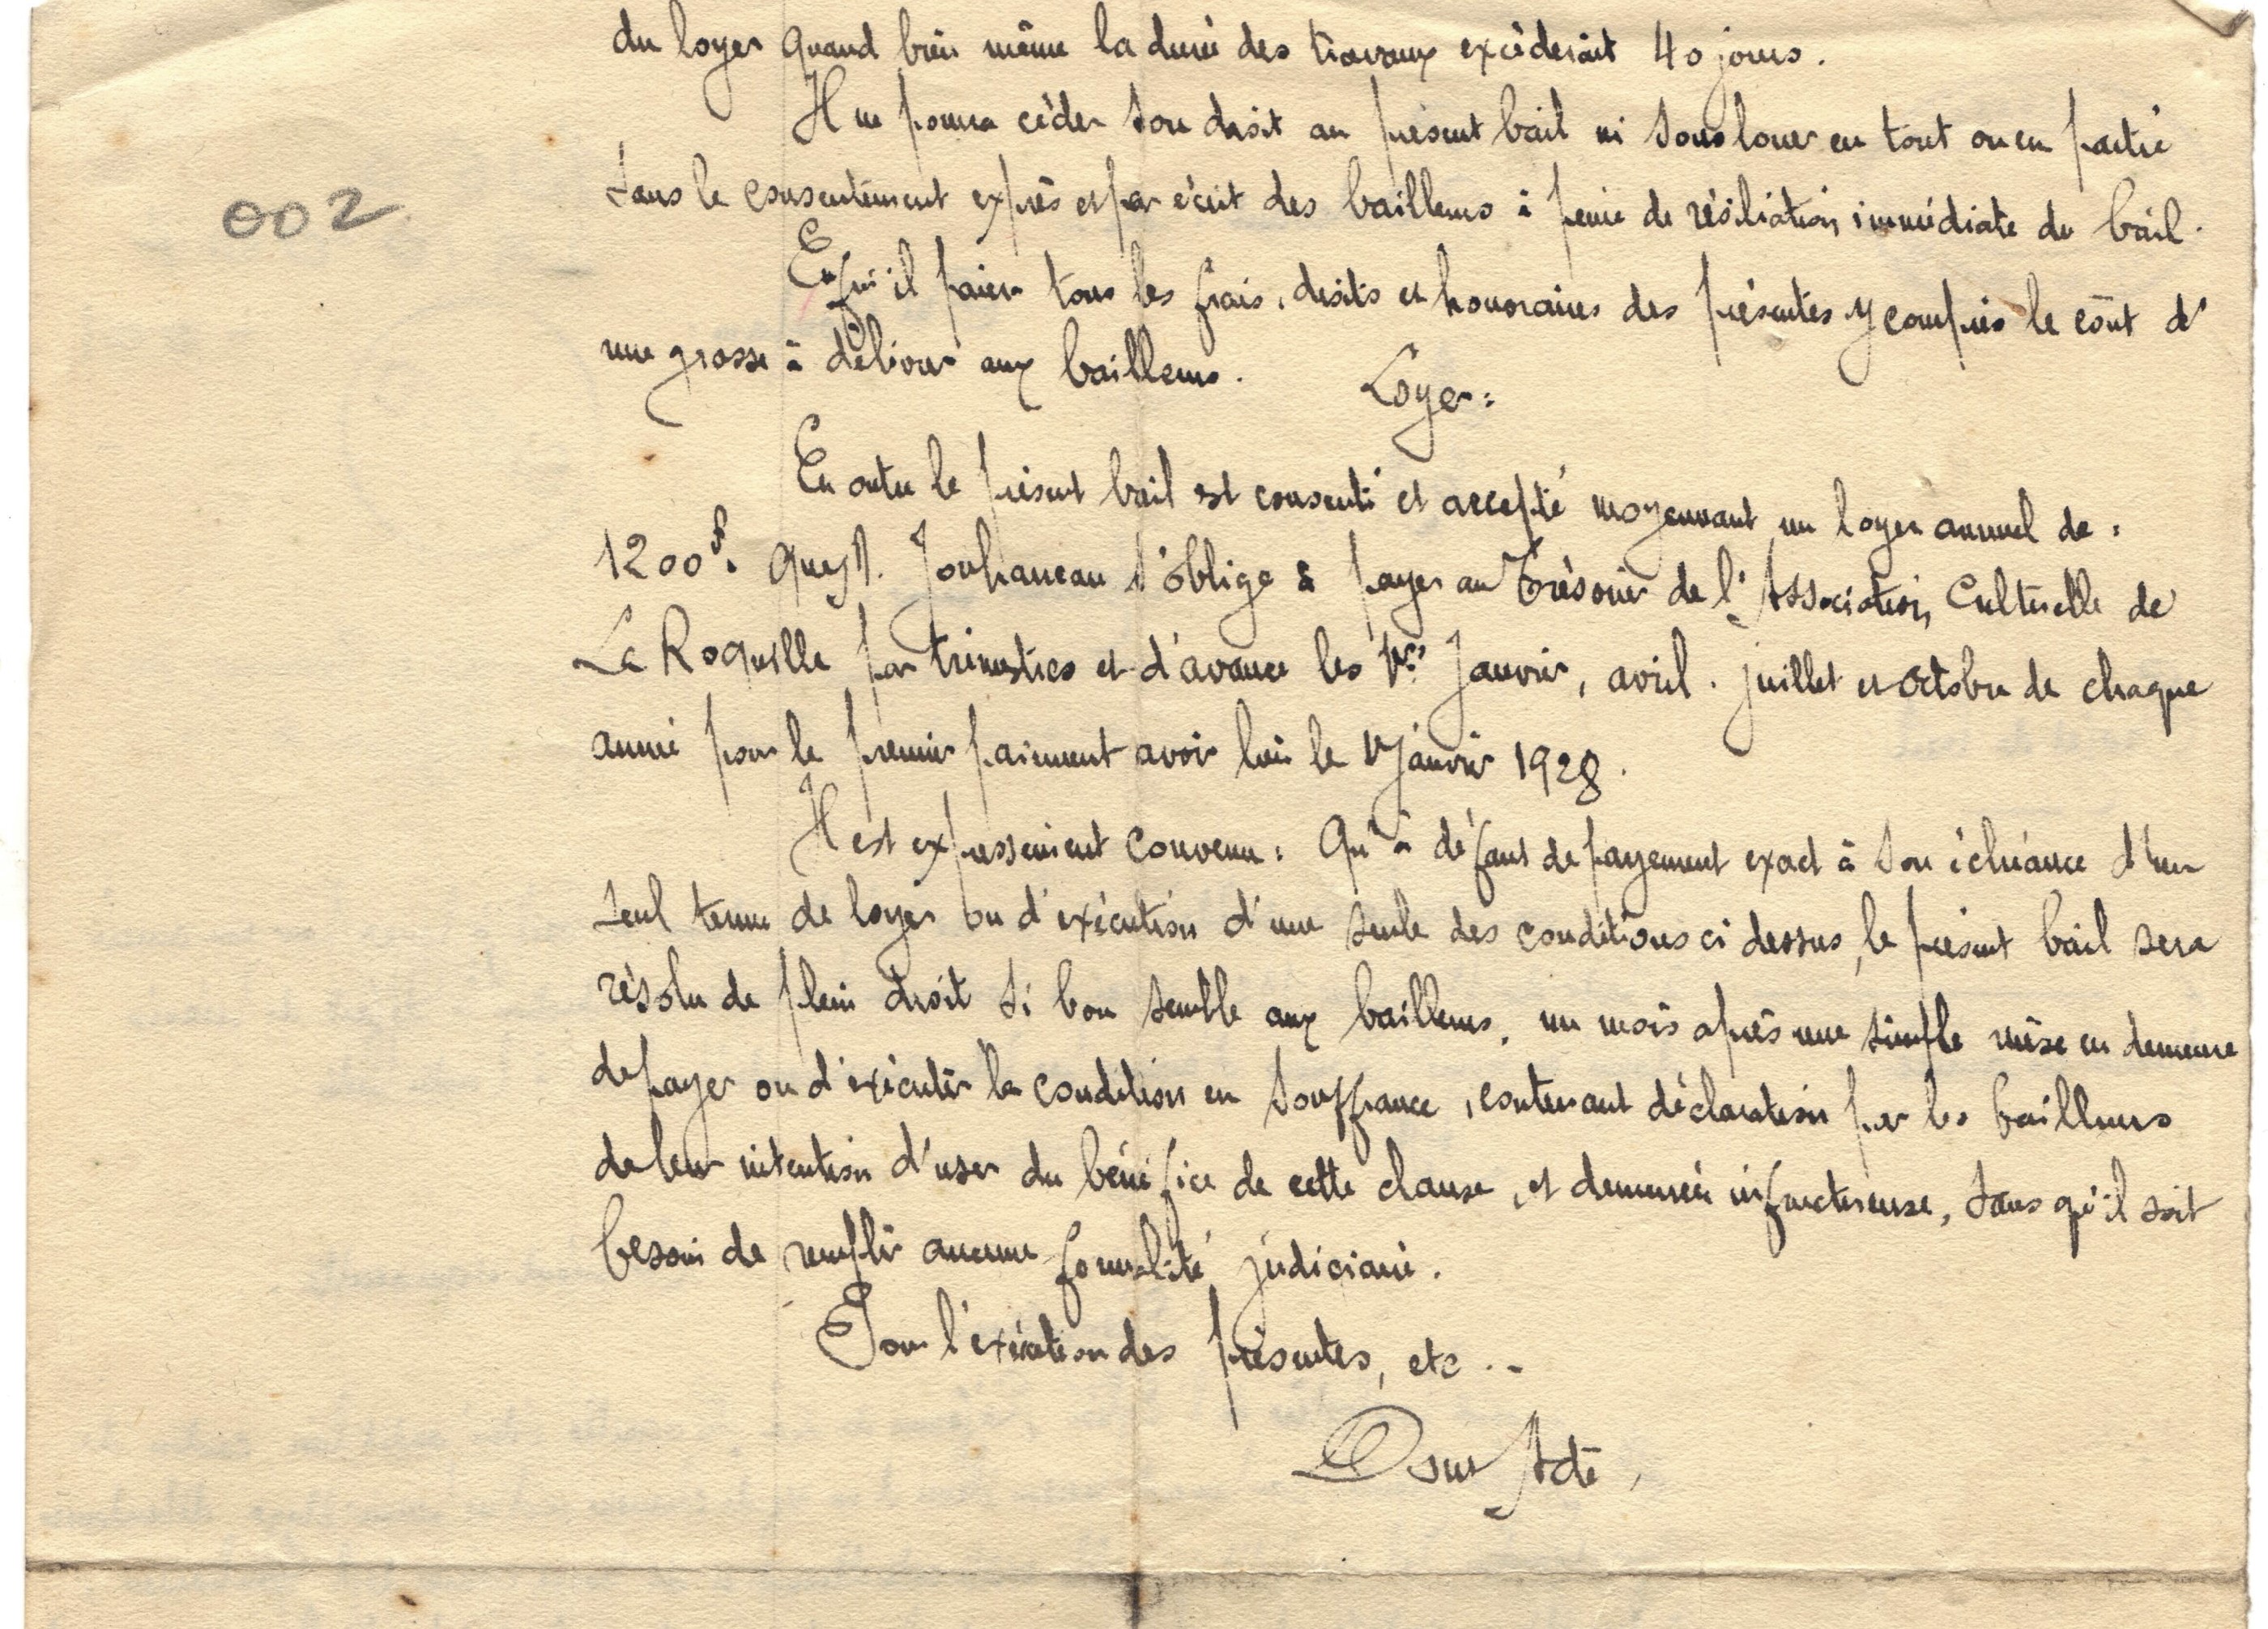 du loyer quand bien même la durée des travaux excèderait 40 jours.
Il ne pourra céder son droit au présent bail ni sous louer en tout ou en partie
002
sans le consentement exprès et par écrit des bailleurs à peine de résiliation immédiate du bail.
Enfin il paiera tous les frais, droits et honoraires des présentes y compris le coût d'
une grosse à délivrer aux bailleurs.
Loyer :
En outre le présent bail est consenti et accepté moyennant un loyer annuel de :
1200f. que M. Jouhaneau s'oblige à payer au Trésorier de l'Association Cultuelle de
La Roquille par trimestres et d'avance les 1ers Janvier, avril. juillet et octobre de chaque
année pour le premier paiement avoir lieu le 1er janvier 1928.
Il est expressément convenu : Qu'à défaut de payement exact à son échéance d'un
seul terme de loyer ou d'exécution d'une seule des conditions ci dessus, le présent bail sera
résolu de plein droit si bon semble aux bailleurs, un mois après une simple mise en demeure
de payer ou d'exécuter la condition en souffrance, contenant déclaration par les bailleurs
de leur intention d'user du bénéfice de cette clause, et demeurée infructueuse, sans qu'il soit
besoin de remplir aucune formalité judiciaire.
Pour l'exécution des présentes, etc..
Dont Acte,